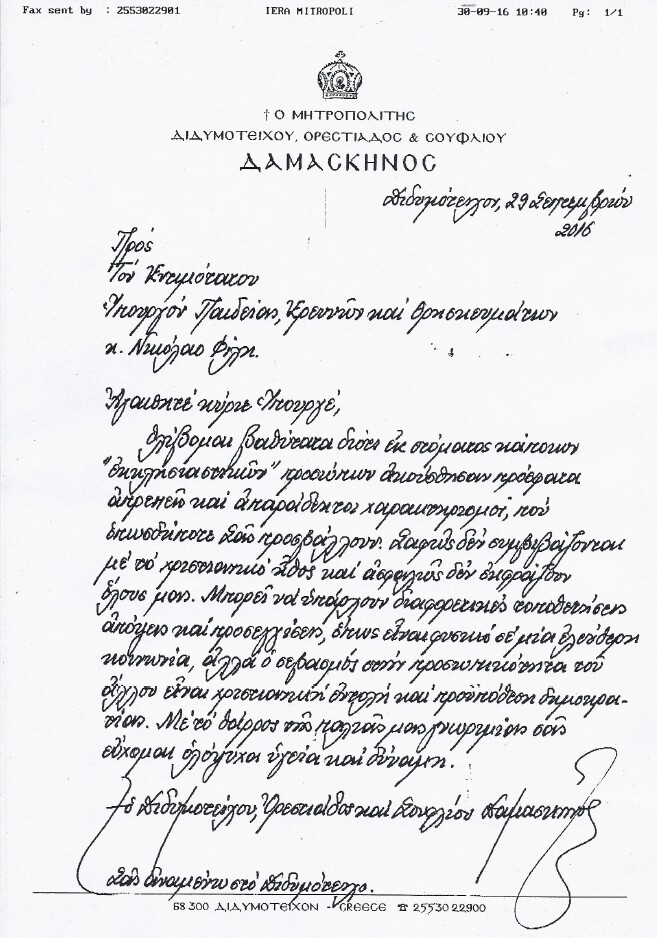 Fax sent by : 2553022901 IERA MITROPOLI 30-09-16 10:40 Pg: 1/1
† Ο ΜΗΤΡΟΠΟΛΙΤΗΣ
ΔΙΔΥΜΟΤΕΙΧΟΥ, ΟΡΕΣΤΙΑΔΟΣ & ΣΟΥΦΛΙΟΥ
ΔΑΜΑΣΚΗΝΟΣ
Διδυμότειχον, 29 Σεπτεμβρίου
2016
Πρός
Τόν Ἐντιμότατον
Ὑπουργόν Παιδείας, Ἐρευνῶν καί Θρησκευμάτων
κ. Νικόλαο Φίλη.
Ἀγαπητέ κύριε Ὑπουργέ,
Θλίβομαι βαθύτατα διότι ἐκ στόματος κάποιων
"ἐκκλησιαστικῶν" προσώπων ἀκούσθησαν πρόσφατα
ἀπρεπεῖς καί ἀπαράδεκτοι χαρακτηρισμοί, πού
ὁπωσδήποτε Σᾶς προσβάλλουν. Σαφῶς δέν συμβιβάζονται
μέ τό χριστιανικό ἦθος καί ἀσφαλῶς δέν ἐκφράζουν
ὅλους μας. Μπορεῖ νά ὑπάρχουν διαφορετικές τοποθετήσεις
ἀπόψεις καί προσεγγίσεις, ὅπως εἶναι φυσικό σέ μία ἐλεύθερη
κοινωνία, ἀλλά ὁ σεβασμός στήν προσωπικότητα τοῦ
ἄλλου εἶναι χριστιανική ἐντολή καί προϋπόθεση δημοκρα-
τίας. Μέ τό θάρρος τῆς παλιᾶς μας γνωριμίας σᾶς
εὔχομαι ὁλόψυχα ὑγεία καί δύναμη.
† ὁ Διδυμοτείχου, Ὀρεστιάδος καί Σουφλίου Δαμασκηνός
Σᾶς ἀναμένω στό Διδυμότειχο.
68 300 ΔΙΔΥΜΟΤΕΙΧΟΝ - GREECE ☎ 25530 22900